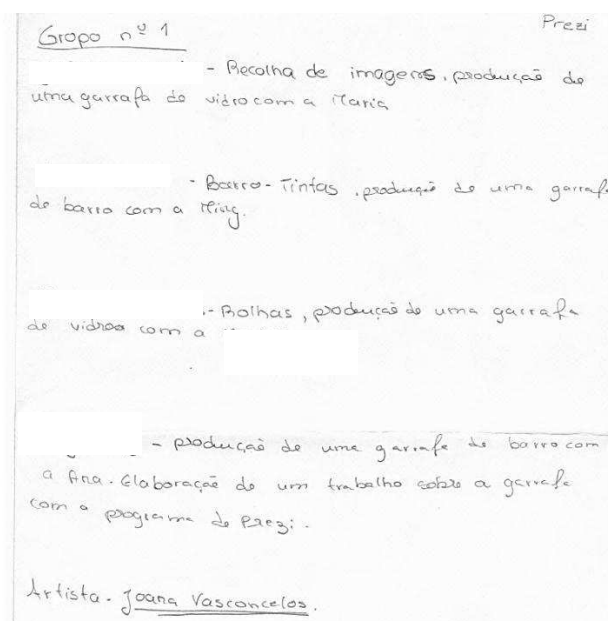 Prezi
Grupo nº 1
- Recolha de imagens, produção de
uma garrafa de vidro com a Maria
- Barro - Tintas, produção de uma garrafa
de barro com a
- Rolhas, produção de uma garrafa
de vidros com a
- produção de uma garrafa de barro com
a Ana. Elaboração de um trabalho sobre a garrafa
com o programa do Prezi.
Artista - Joana Vasconcelos.